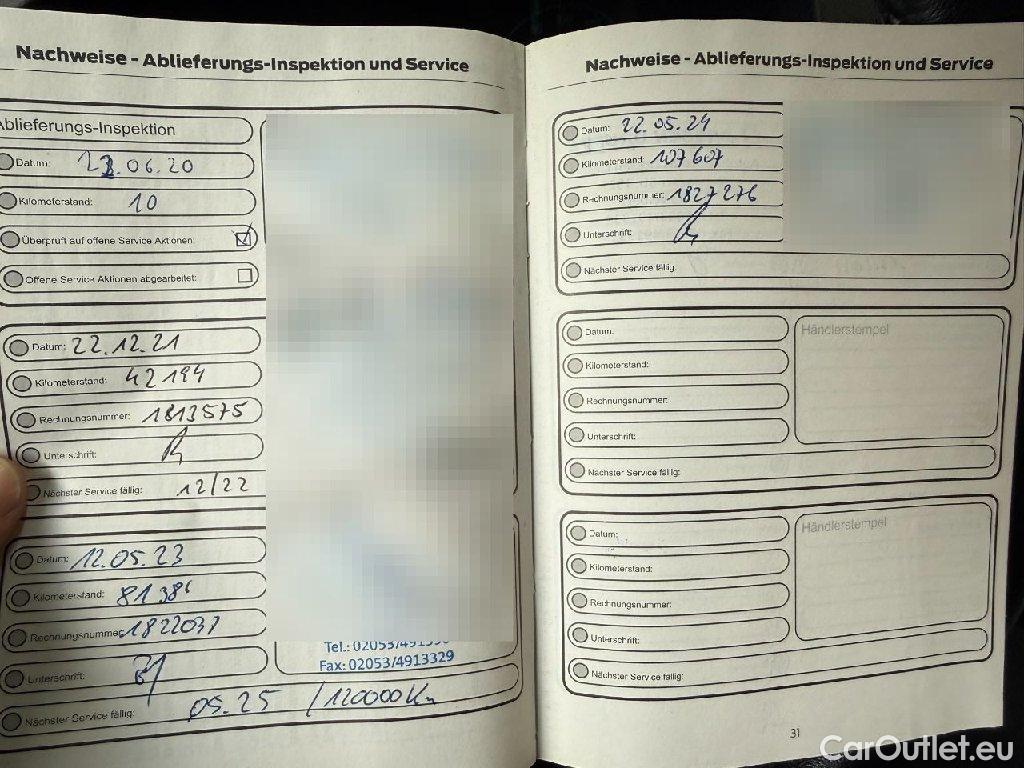 Nachweise - Ablieferungs-Inspektion und Service
Ablieferungs-Inspektion
Datum: 22.06.20
Kilometerstand: 10
Überprüft auf offene Service Aktionen:
Offene Service Aktionen abgearbeitet:
Datum: 22.12.21
Kilometerstand: 42194
Rechnungsnummer: 1813575
Unterschrift:
Nächster Service fällig: 12/22
Datum: 12.05.23
Kilometerstand: 81386
Rechnungsnummer: 1822037
Unterschrift:
Tel.: 02053/
Fax: 02053/4913329
Nächster Service fällig: 05.25 / 120000 Km
Nachweise - Ablieferungs-Inspektion und Service
Datum: 22.05.24
Kilometerstand: 107607
Rechnungsnummer: 1827276
Unterschrift:
Nächster Service fällig:
Datum:
Händlerstempel
Kilometerstand:
Rechnungsnummer:
Unterschrift:
Nächster Service fällig:
Datum:
Händlerstempel
Kilometerstand:
Rechnungsnummer:
Unterschrift:
Nächster Service fällig:
31
CarOutlet.eu